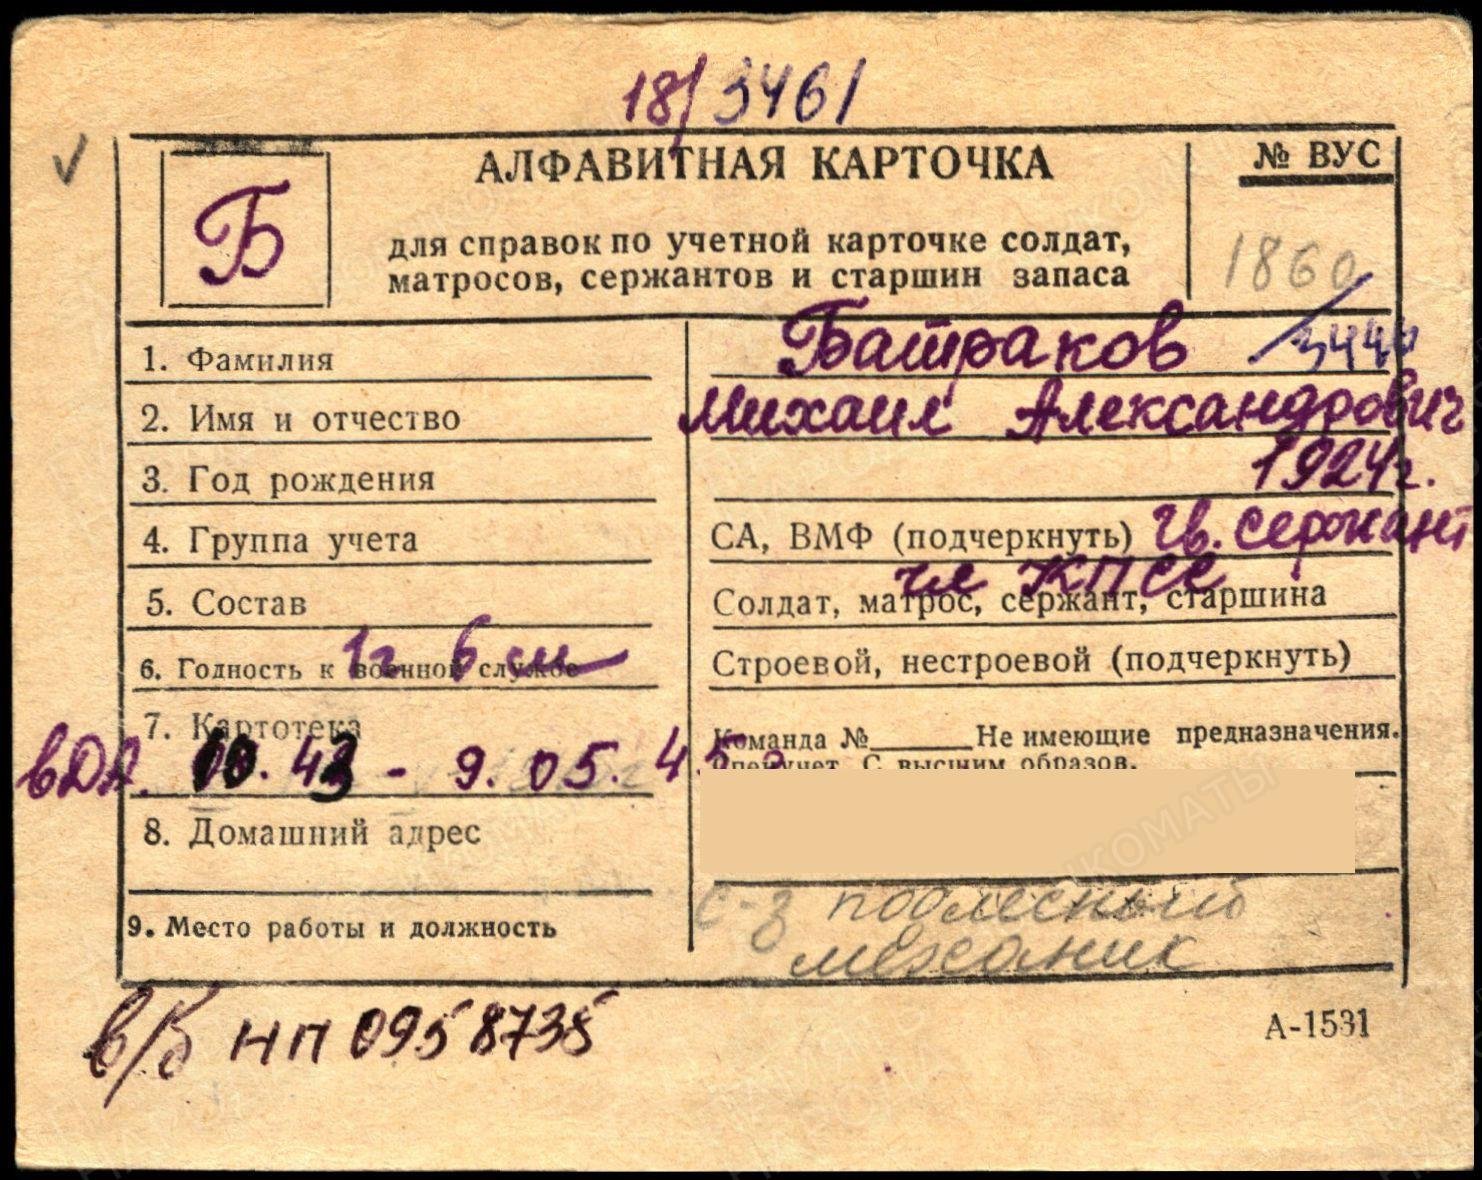 18/3461
Б
АЛФАВИТНАЯ КАРТОЧКА
для справок по учетной карточке солдат,
матросов, сержантов и старшин запаса
№ ВУС
1860
1. Фамилия Батраков
2. Имя и отчество Михаил Александрович
3. Год рождения 1924г.
4. Группа учета СА, ВМФ (подчеркнуть) гв. сержант
чл КПСС
5. Состав Солдат, матрос, сержант, старшина
6. Годность к военной службе Строевой, нестроевой (подчеркнуть)
7. Картотека Команда № Не имеющие предназначения.
С высшим образов.
вДА. 10.43 - 9.05.45
8. Домашний адрес
9. Место работы и должность с-з подлесный
механик
в/б НП 0958735
А-1531